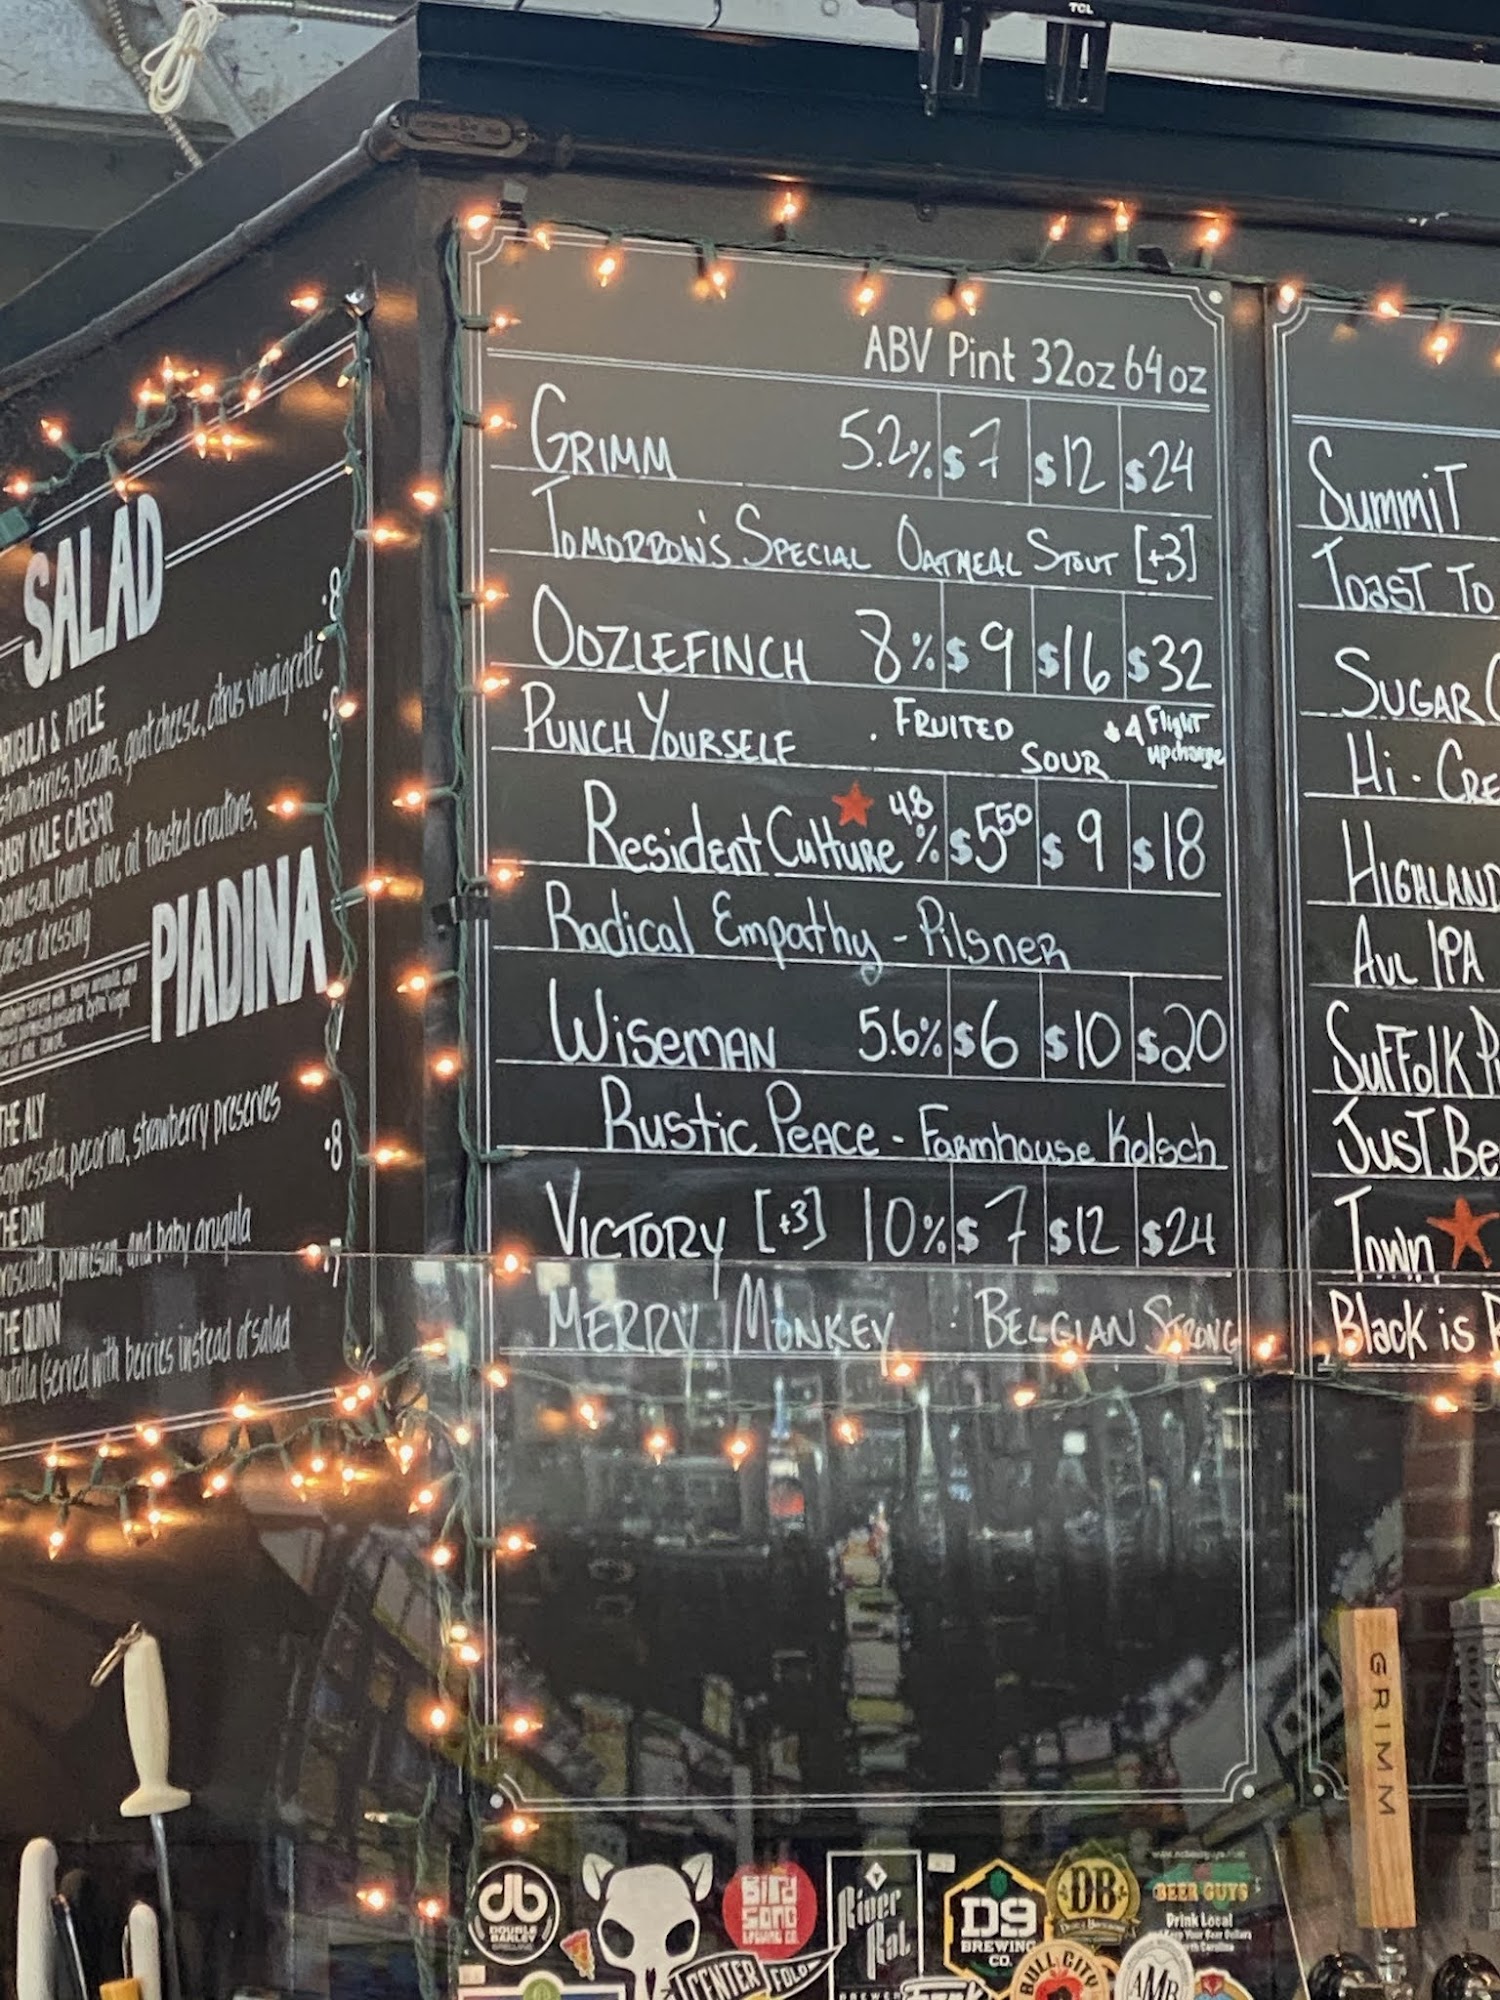 TCL
SALAD
ARUGULA & APPLE
strawberries, pecans, goat cheese, citrus vinaigrette
·8
BABY KALE CAESAR
parmesan, lemon, olive oil toasted croutons,
caesar dressing
PIADINA
THE ALY
soppressata, pecorino, strawberry preserves
·8
THE DAN
prosciutto, parmesan, and baby arugula
THE QUINN
nutella (served with berries instead of salad
ABV Pint 32oz 64oz
GRIMM 5.2% $7 $12 $24
TOMORROW'S SPECIAL OATMEAL STOUT [+3]
OOZLEFINCH 8% $9 $16 $32
PUNCH YOURSELF . FRUITED SOUR +4 Flight upcharge
Resident Culture 4.8% $5.50 $9 $18
Radical Empathy - Pilsner
WISEMAN 5.6% $6 $10 $20
Rustic Peace - Farmhouse Kolsch
VICTORY [+3] 10% $7 $12 $24
MERRY MONKEY : BELGIAN STRONG
SummiT
Toast To
SUGAR
Hi - CRE
HIGHLAND
AVL IPA
SuFFolk
JusT Be
Town
Black is
GRIMM
db
DOUBLE
BARLEY
BREWING
Bird
Song
BREWING CO.
River
Rat
BREWERY
D9
BREWING
CO.
DB
BEER GUYS
Drink Local
CENTER
FOLD
BULL CITY
AMB